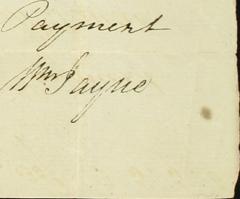 Payment
Wm Jayne